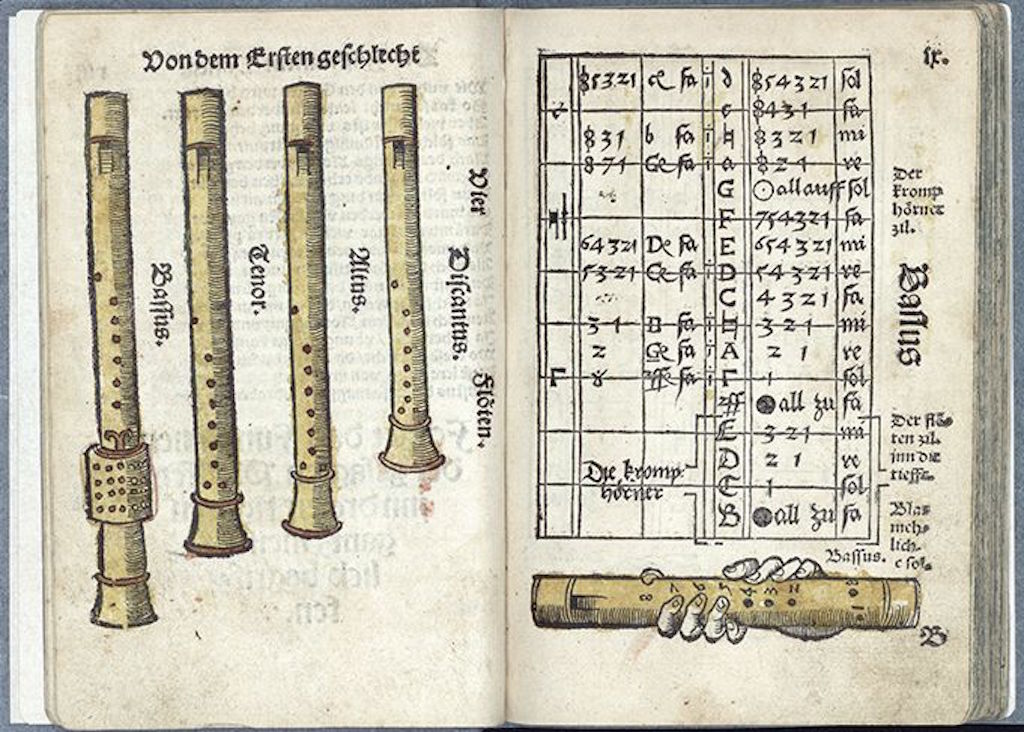 Von dem Ersten geschlecht
Bassus.
Tenor.
Altus.
Discantus.
Vier
Flöten.
ix.
85321 fa d 854321 sol
c 8431 fa
831 b fa 8321 mi
871 Ge fa a 821 re
G all auff sol
F 754321 fa
64321 De fa E 654321 mi
5321 Ce fa D 54321 re
C 4321 fa
31 B fa 321 mi
2 Ge fa A 21 re
Γ 8 fff fa Γ 1 sol
ff all zu fa
E 321 mi
D 21 re
C 1 sol
B all zu fa
Die kromp-
hörner
Der
kromp
hörner
zil.
Bassus
Der flö-
ten zil.
inn die
tieffe.
Blas
mech-
lich.
c sol.
Bassus.
8 7 6 5 4 3 2 1 8
B